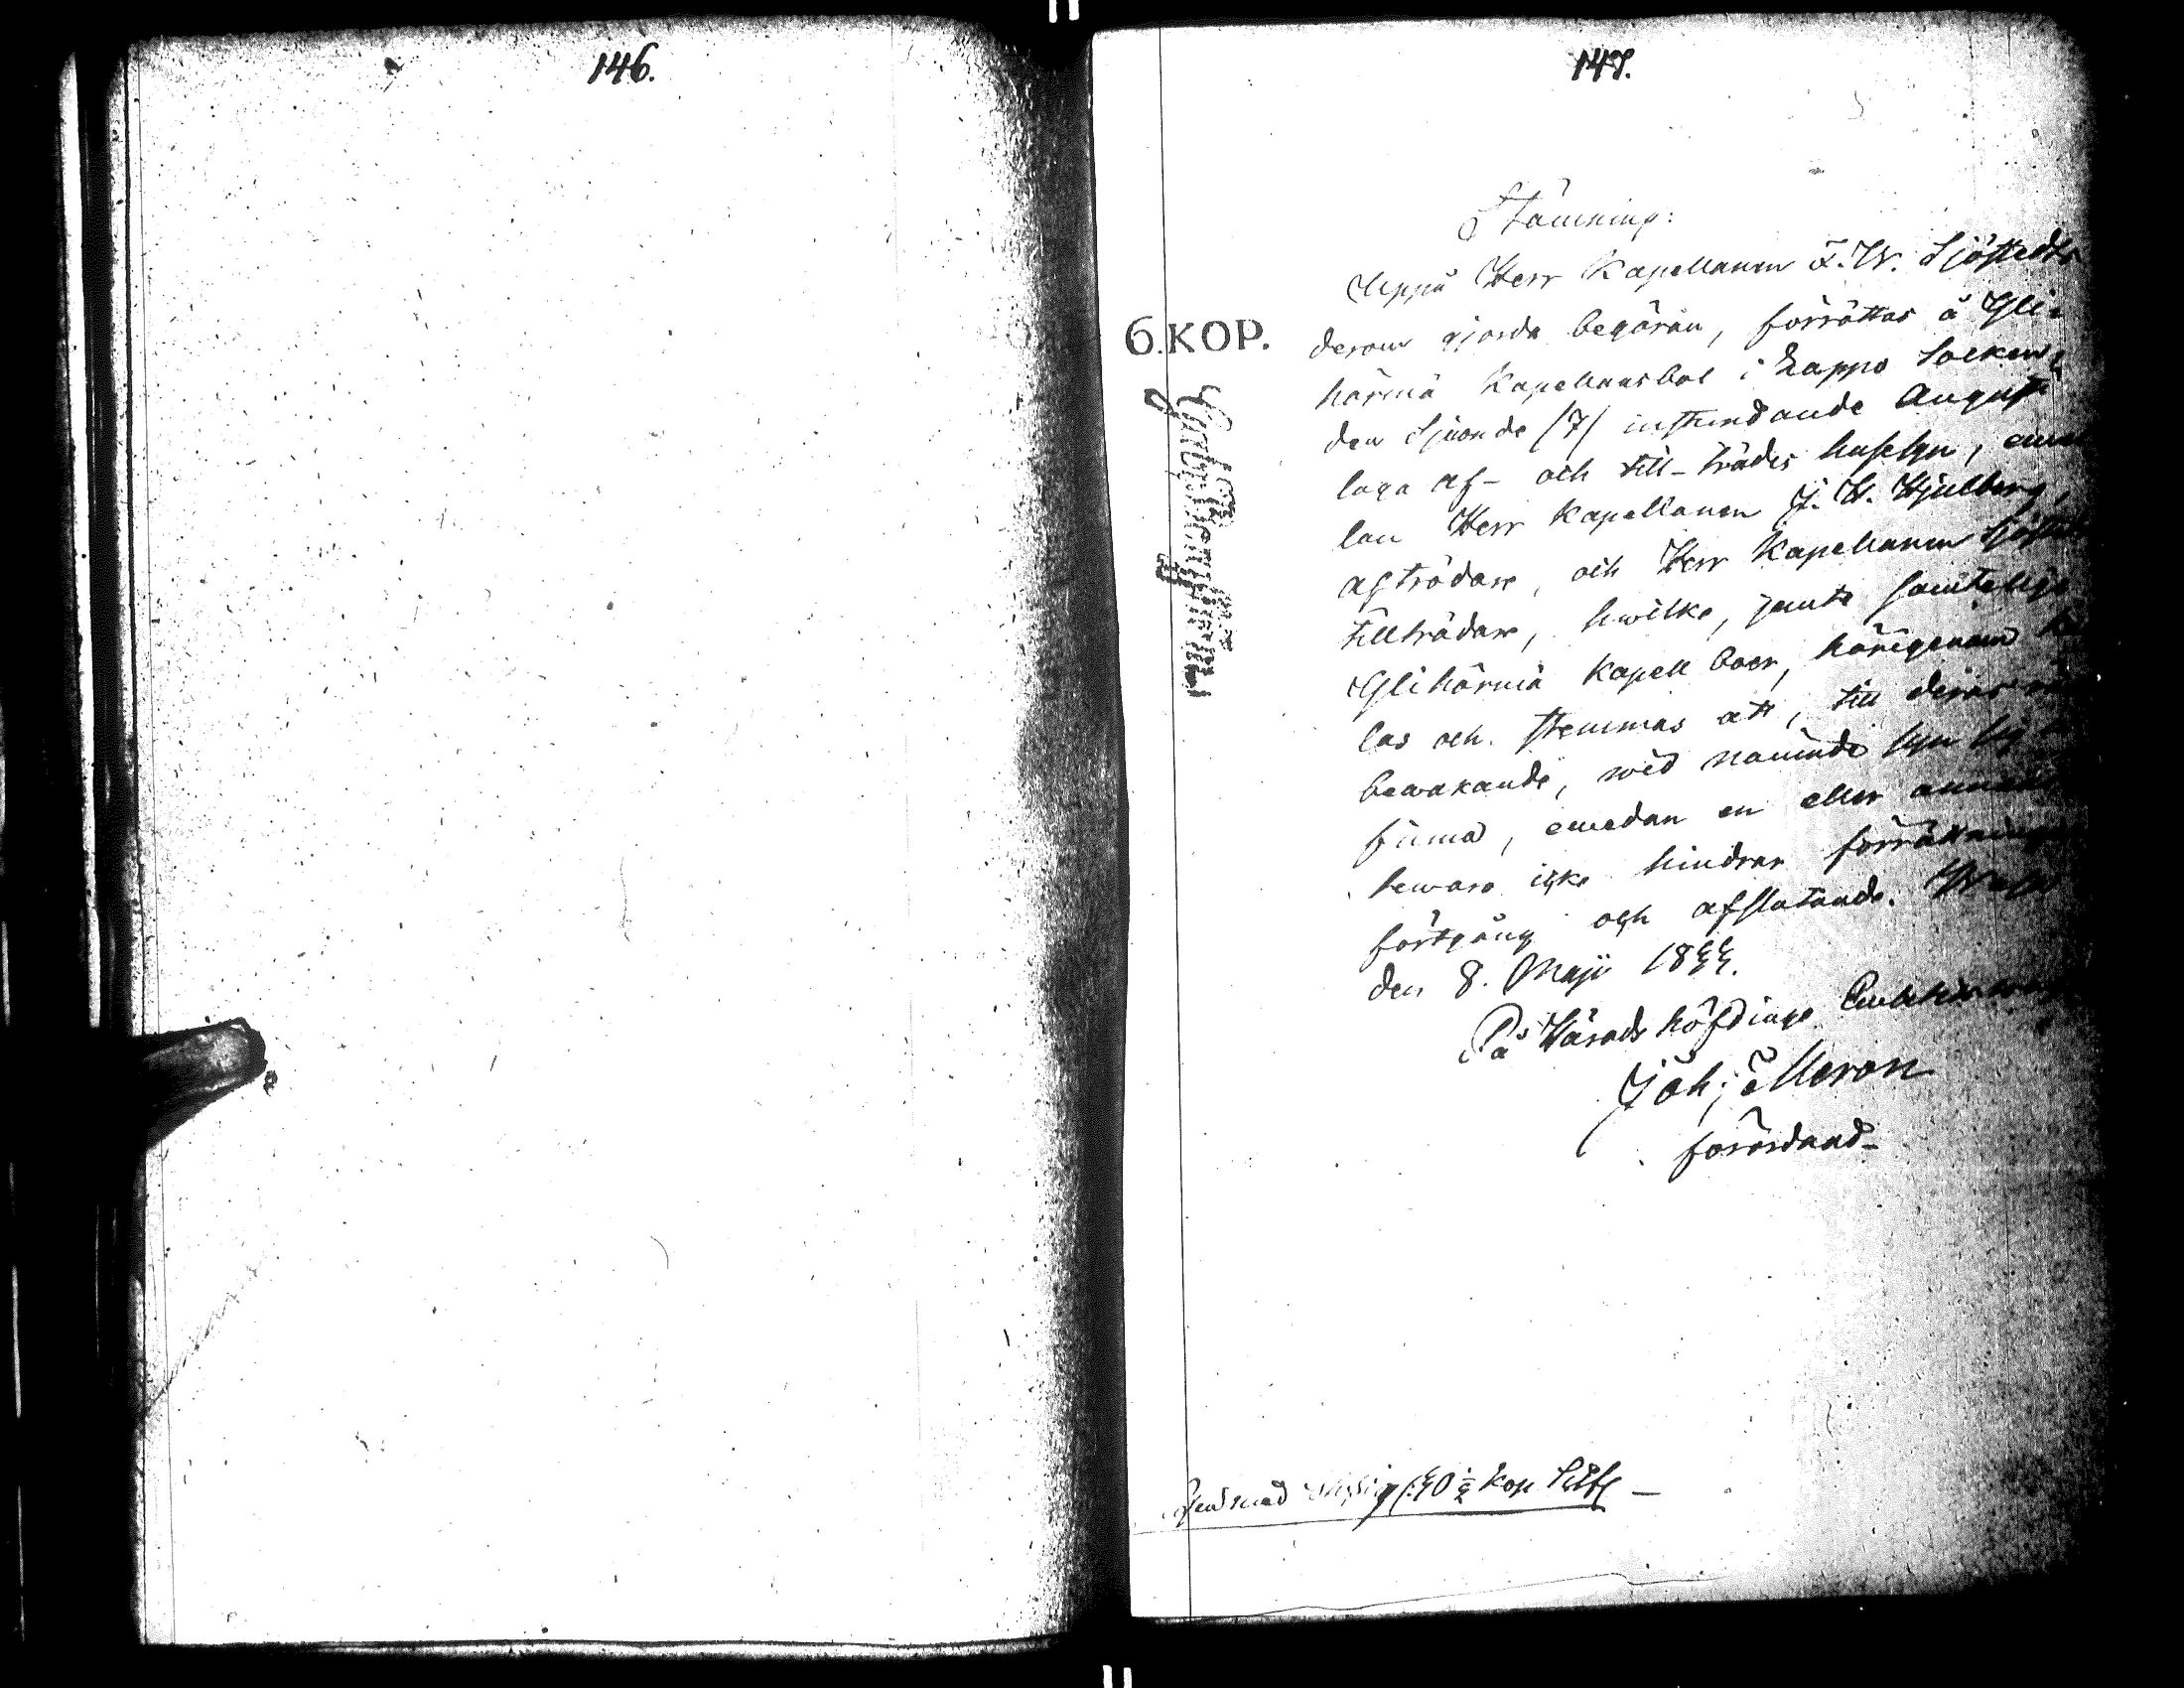 146.
147.
Stämning:
Uppå Herr Kapellanen F. W. Sjöstedts
derom gjorda begäran, förrättas å Yli-
härmä Kapellansbol i Lappo Socken,
den Sjuonde (7) instundande August
laga af- och till-trädes husesyn, emel
lan Herr Kapellanen J. W. Hjulberg,
afträdare, och Herr Kapellanen
tillträdare, hwilka, jemte samtelige
Ylihärmä Kapell boer, härigenom
las och stemmas att, till deras
bewakande, wid nämnde syn sig
finna, emedan en eller annans
hewaro icke hindrar förrättningens
förtgång och afslutande.
den 8. Maji 1844.
På Härads höfdinge Embetets
Joh:
förordnad
6.KOP.
40 1/2 Kop Silfr